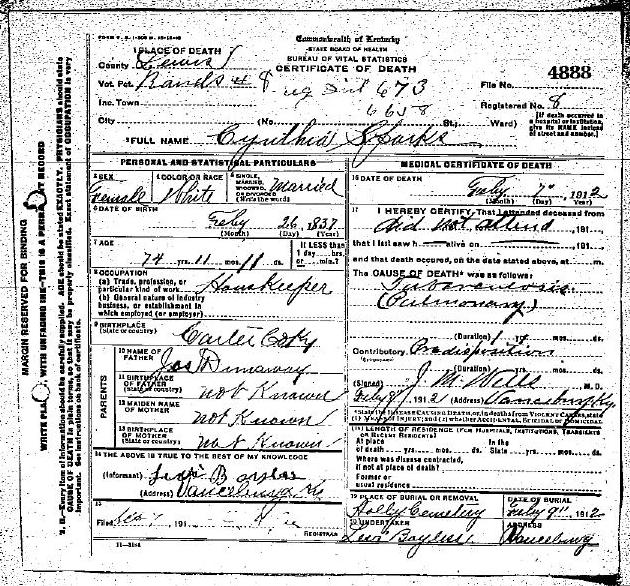 Commonwealth of Kentucky
STATE BOARD OF HEALTH
BUREAU OF VITAL STATISTICS
CERTIFICATE OF DEATH
1 PLACE OF DEATH
County Lewis
Vot. Pct.
Inc. Town
City (No. St., Ward)
673
6658
File No. 4888
Registered No. 8
[If death occurred in a hospital or institution, give its NAME instead of street and number.]
2 FULL NAME Cynthia Sparks
PERSONAL AND STATISTICAL PARTICULARS
3 SEX Female
4 COLOR OR RACE White
5 SINGLE, MARRIED, WIDOWED, OR DIVORCED (Write the word) Married
6 DATE OF BIRTH
26 1837
(Month) (Day) (Year)
7 AGE
74 yrs. 11 mos. 11 ds.
If LESS than 1 day hrs. or min.?
8 OCCUPATION
(a) Trade, profession, or particular kind of work Housekeeper
(b) General nature of industry business, or establishment in which employed (or employer)
9 BIRTHPLACE (State or country) Carter Co Ky
PARENTS
10 NAME OF FATHER Jas Dunaway
11 BIRTHPLACE OF FATHER (State or country) not Known
12 MAIDEN NAME OF MOTHER not Known
13 BIRTHPLACE OF MOTHER (State or country) not Known
14 THE ABOVE IS TRUE TO THE BEST OF MY KNOWLEDGE
(Informant)
(Address) Vanceburg Ky
15
Filed 191
REGISTRAR
11—3184
MEDICAL CERTIFICATE OF DEATH
16 DATE OF DEATH
7" 1912
(Month) (Day) (Year)
17 I HEREBY CERTIFY, That I attended deceased from
did not attend 191
that I last saw h alive on 191
and that death occurred, on the date stated above, at m.
The CAUSE OF DEATH* was as follows:
Tuberculosis
(Pulmonary)
(Duration) yrs. mos. ds.
Contributory Predisposition
(Duration) yrs. mos. ds.
(Signed) J. M. Wells M.D.
1912 (Address) Vanceburg Ky.
*State the DISEASE CAUSING DEATH, or, in deaths from VIOLENT CAUSES, state (1) MEANS OF INJURY; and (2) whether ACCIDENTAL, SUICIDAL or HOMICIDAL
18 LENGTH OF RESIDENCE (FOR HOSPITALS, INSTITUTIONS, TRANSIENTS OR RECENT RESIDENTS)
At place of death yrs. mos. ds. In the State yrs. mos. ds.
Where was disease contracted, if not at place of death?
Former or usual residence
19 PLACE OF BURIAL OR REMOVAL Holly Cemetery
DATE OF BURIAL 9" 1912
20 UNDERTAKER Levi Bayless
ADDRESS Vanceburg
MARGIN RESERVED FOR BINDING
WRITE PLAINLY, WITH UNFADING INK—THIS IS A PERMANENT RECORD
N. B.—Every item of information should be carefully supplied. AGE should be stated EXACTLY. PHYSICIANS should state CAUSE OF DEATH in plain terms, so that it may be properly classified. Exact statement of OCCUPATION is very important. See instructions on back of certificate.